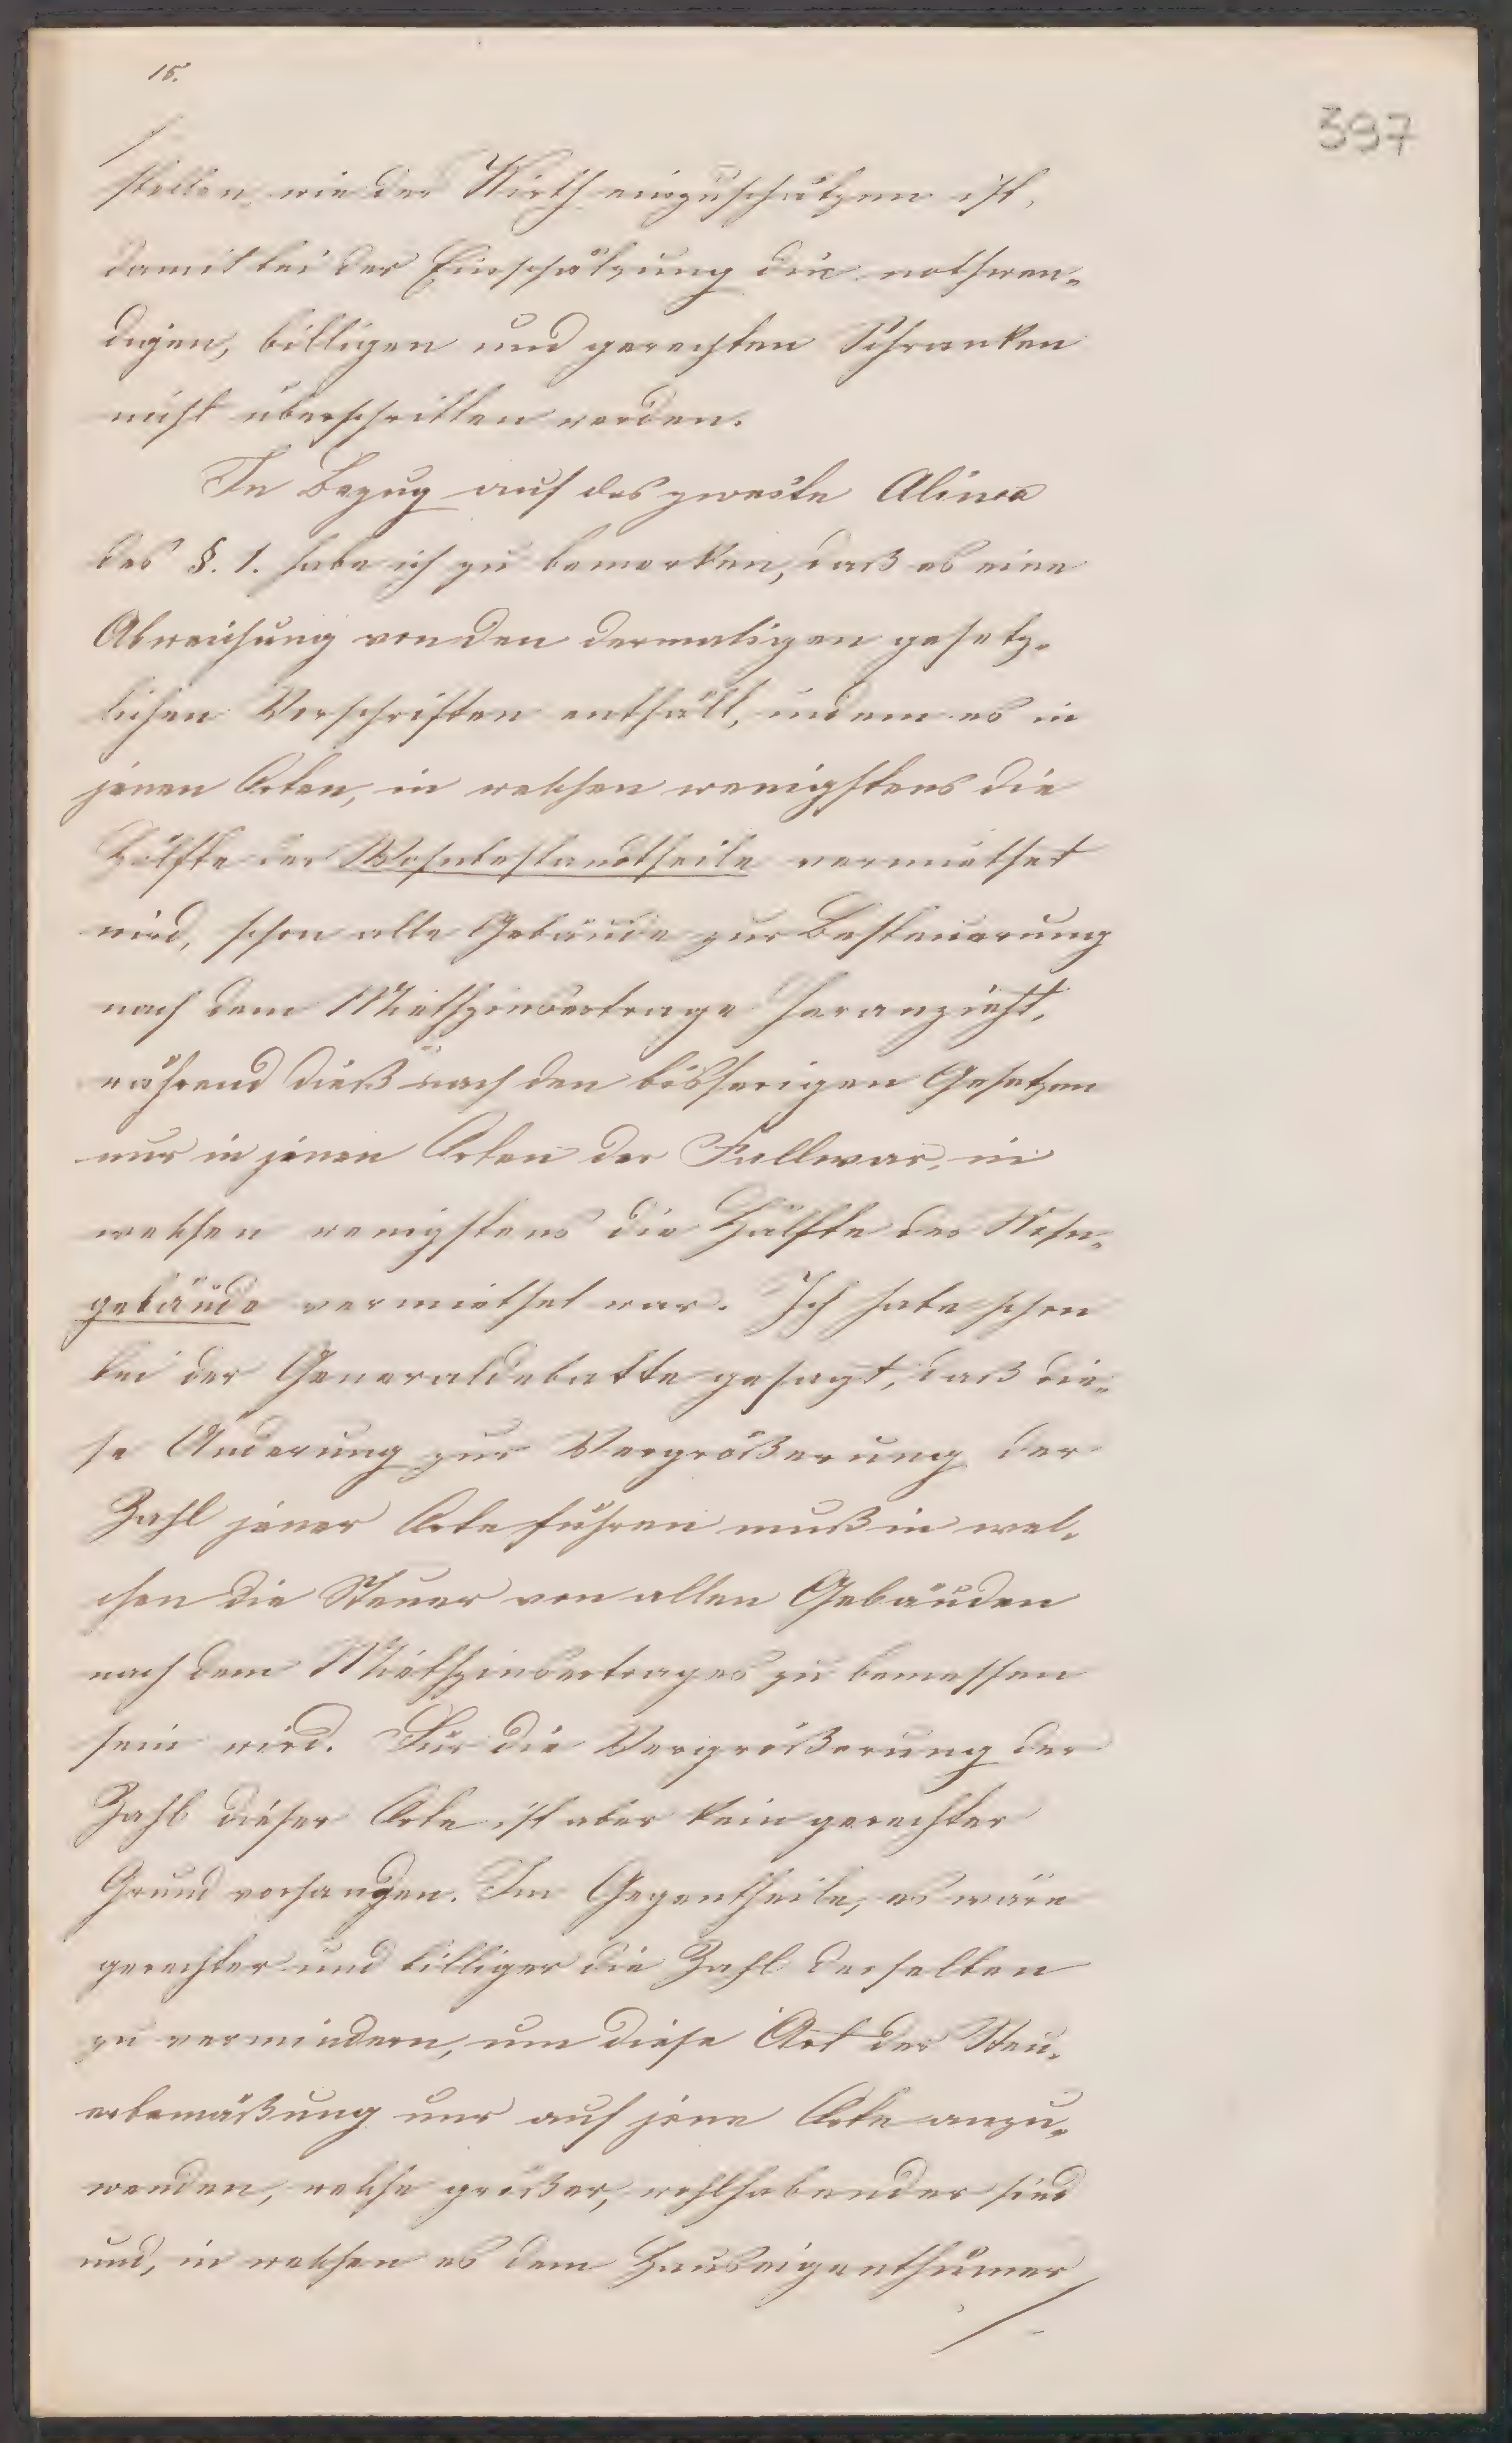 15.
397
stellen, wie der Wirth einzuschätzen ist,
damit bei der Einschätzung die nothwen-
digen, billigen und gerechten Schranken
nicht überschritten werden.
In Bezug auf das zweite Alinea
des §. 1. habe ich zu bemerken, daß es eine
Abweichung von den dermaligen gesetz-
lichen Vorschriften enthält, indem es in
jenen Orten, in welchen wenigstens die
Hälfte der Wohnbestandtheile vermiethet
wird, schon alle Gebäude zur Besteuerung
nach dem Miethzinsertrage heranzieht,
während dieß nach den bisherigen Gesetzen
nur in jenen Orten der Fall war, in
welchen wenigstens die Hälfte der Wohn-
gebäude vermiethet war. Ich habe schon
bei der Generaldebatte gesagt, daß die-
se Änderung zur Vergrößerung der
Zahl jener Orte führen muß in wel-
chen die Steuer von allen Gebäuden
nach dem Miethzinsertrages zu bemessen
sein wird. Für die Vergrößerung der
Zahl dieser Orte ist aber kein gerechter
Grund vorhanden. Im Gegentheile, es wäre
gerechter und billiger die Zahl derselben
zu vermindern, um diese Art der Steu-
erbemäßung nur auf jene Orte anzu-
wenden, welche größer, wohlhabender sind
und, in welchen es dem Hauseigenthümer